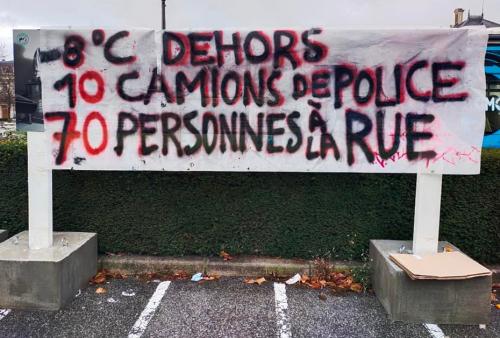 -8°C DEHORS
10 CAMIONS DE POLICE
70 PERSONNES À LA RUE